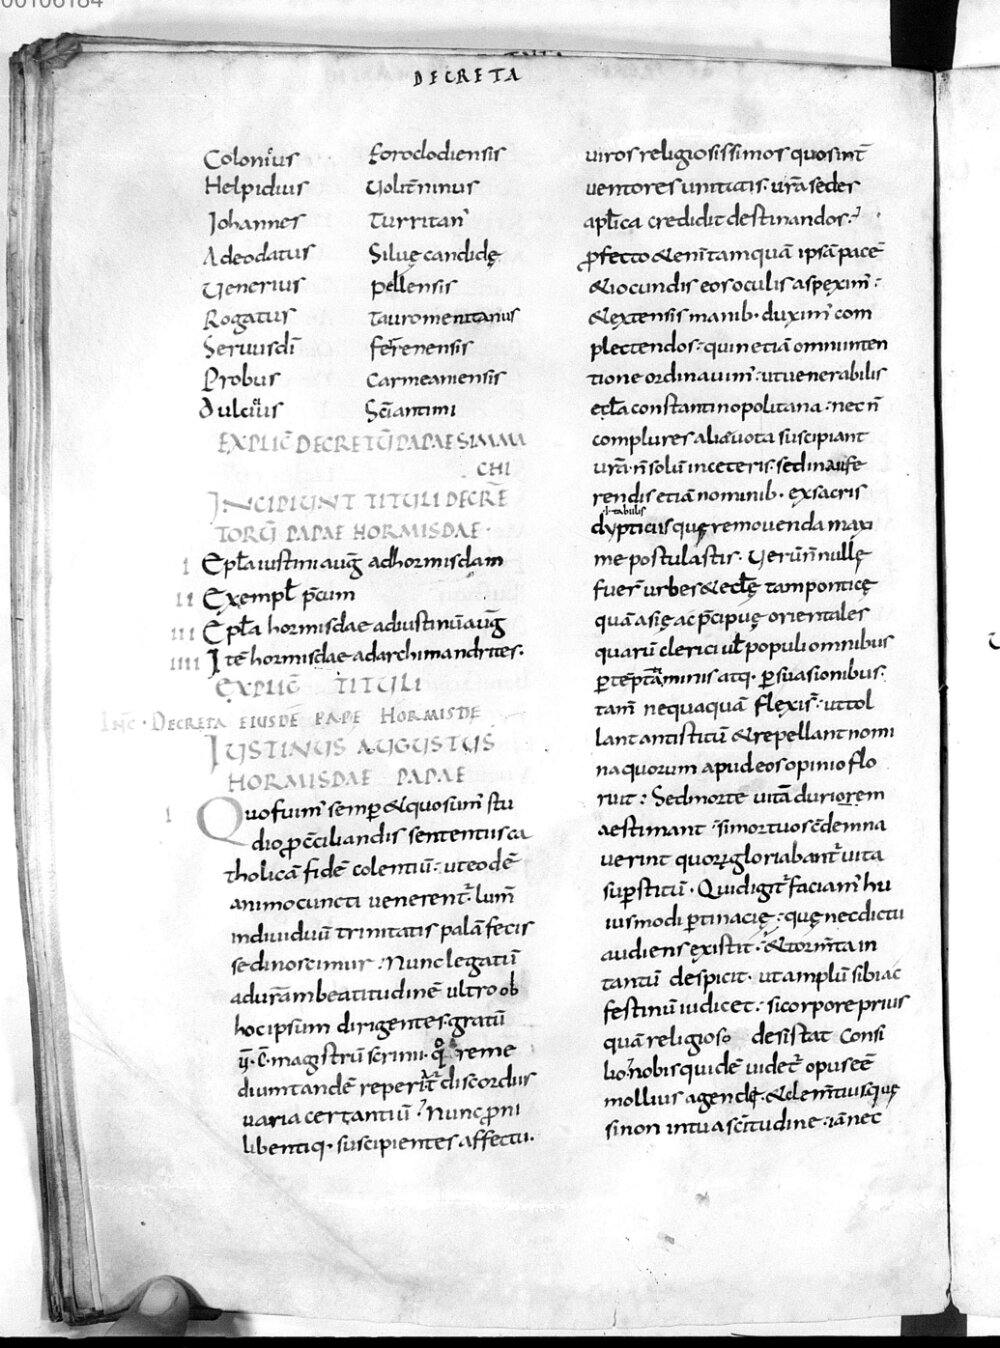 00106184
DECRETA
Coloni'us forodo diensis
Helpidius Uolit̄ninus
Johannes Turritan̄
Adeodatus Siluę candidę
Uenerius pellensis
Rogatus tauromenitanus
Seruusdī ferenensis
Probus Carmeaniensis
dulcius Sc̄iantimi
EXPLIC̄ DECRETŪ PAPAE SIMMA
CHI
INCIPIUNT TITULI DECRE
TORŪ PAPAE HORMISDAE
I Epl̄a iustini auḡ ad hormisdam
II Exempl̄ p̄cum
III Epl̄a hormisdae ad iustinū auḡ
IIII Itē hormisdae ad archimandrites.
EXPLIC̄ TITULI
INC̄ · DECRETA EIUSDĒ PAPE HORMISDE
IUSTINUS AUGUSTUS
HORMISDAE PAPAE
I Quo fuim̄ semp̱ & quo sum̄ stu
dio p̱c̄ciliandis sententiis ca
tholicā fidē colentiū: ut eodē
animo cuncti uenerent̄: lum̄
indiuiduū trinitatis palā fecis
se dinoscimur: Nunc legatū
ad urām beatitudinē ultro ob
hoc ipsum dirigentes gratū
u̅·c̅· magistrū scrinii· q̊ reme
dium tandē reperit̄ discordiis
uaria certantiū? Nunc p̱ni
libentiq· suscipientes affectu.
uiros religiosissimos quos inūt
uentores unitatis· ur̄a sedes
apl̄ica credidit destinandos:
p̱fecto & enī tam quā ipsā pacē
& iocundis eos oculis aspexim̄:
& extensis manib· duxim̄ com
plectendos: quin etiā omni inten
tione ordinauim̄: ut uenerabilis
eccl̄a constantinopolitana: nec n̄
complures alia uota suscipiant
ur̄a· n̄ solū in ceteris· sed in aufe
rendis etiā nominib· ex sacris
·i· tabulis
dypticiis quę remouenda maxi
me postulastis· Uerūn nullę
fuer̄ urbes & eccl̄ę tam ponticę
quā asię ac p̄cipuę orientales
quarū clerici ul̄ populi omnibus
p̱tēptā minis atq· p̱suasionibus·
tam̄ nequaquā flexis̄: ut tol
lant antistitū & repellant nomi
na quorum apud eos opinio flo
ruit: Sed morte uitā duriorem
aestimant si mortuos c̄demna
uerint quoꝝ gloriabant̄ uita
sup̱stitū· Quid igit̄ faciam̄ hu
iusmodi p̱tinacię: quę nec dictu
audiens existit· & tormn̄ta in
tantū despicit· ut amplū sibi ac
festinū iudicet: si corpore prius
quā religioso desistat Consi
lio: nobis quidē uidet̄ opus eē
mollius agendę· & clem̄tiusque
si non intua sc̄itudine: iā nec